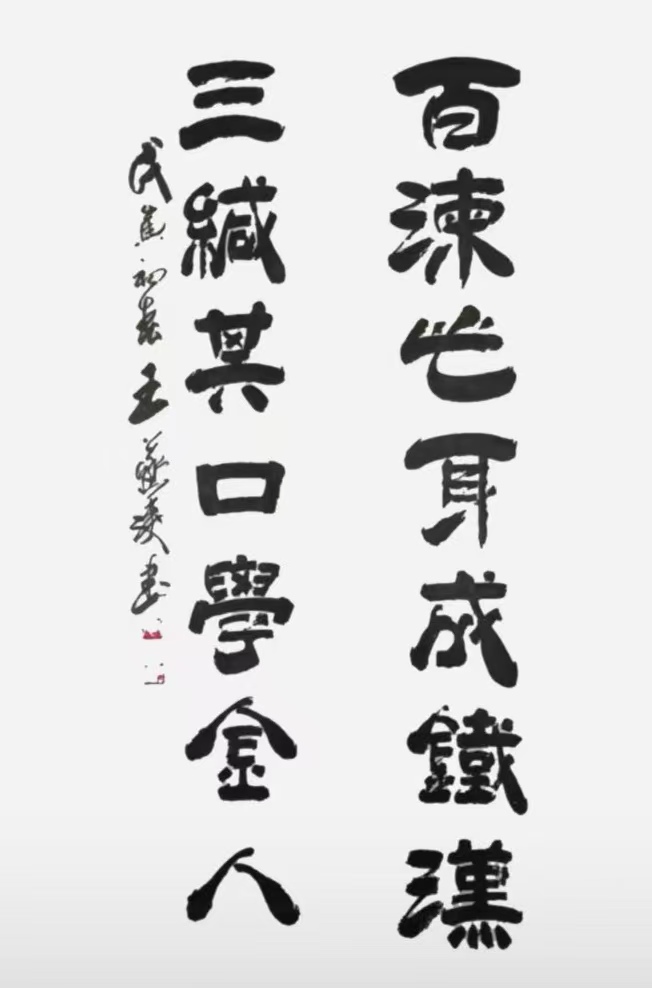 百湅此身成鐵漢
三緘其口學金人
戊寅初春王書